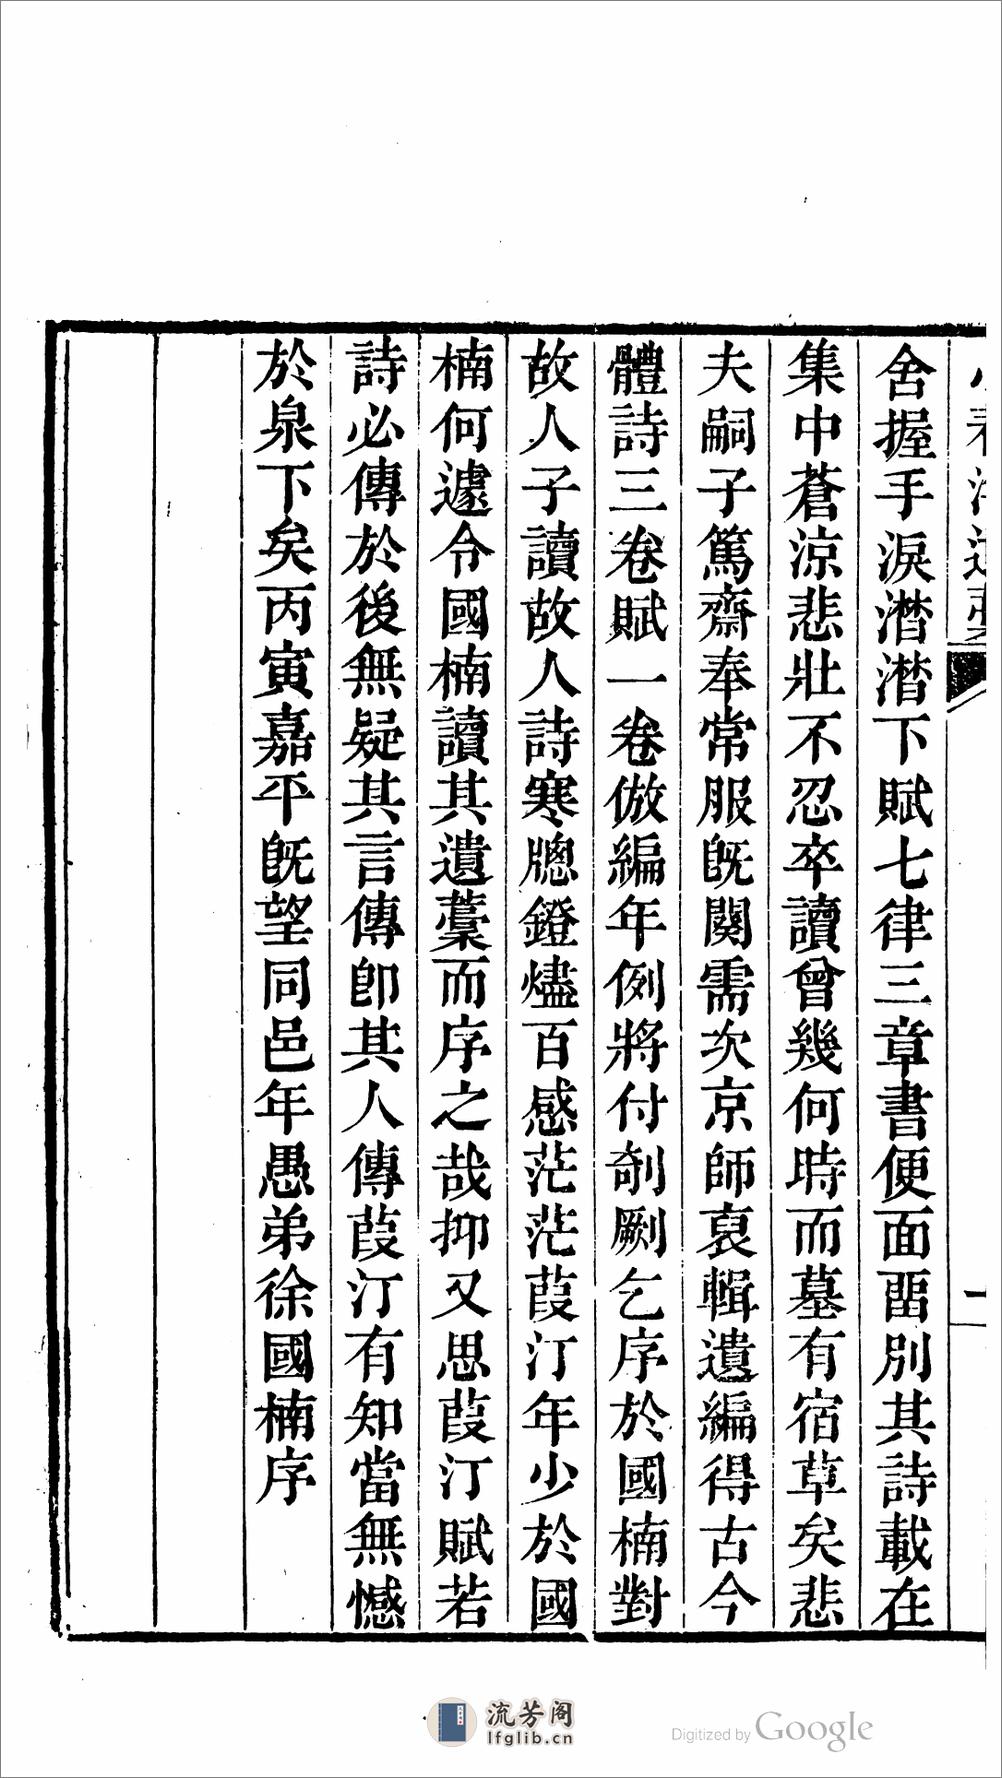 舍握手淚潸潸下賦七律三章書便面畱別其詩載在
集中蒼涼悲壯不忍卒讀曾幾何時而墓有宿草矣悲
夫嗣子篤齋奉常服旣闋需次京師裒輯遺編得古今
體詩三卷賦一卷倣編年例將付剞劂乞序於國楠對
故人子讀故人詩寒牕鐙燼百感茫茫葭汀年少於國
楠何遽令國楠讀其遺藁而序之哉抑又思葭汀賦若
詩必傳於後無疑其言傳卽其人傳葭汀有知當無憾
於泉下矣丙寅嘉平旣望同邑年愚弟徐國楠序
流芳阁
lfglib.cn
Digitized by Google